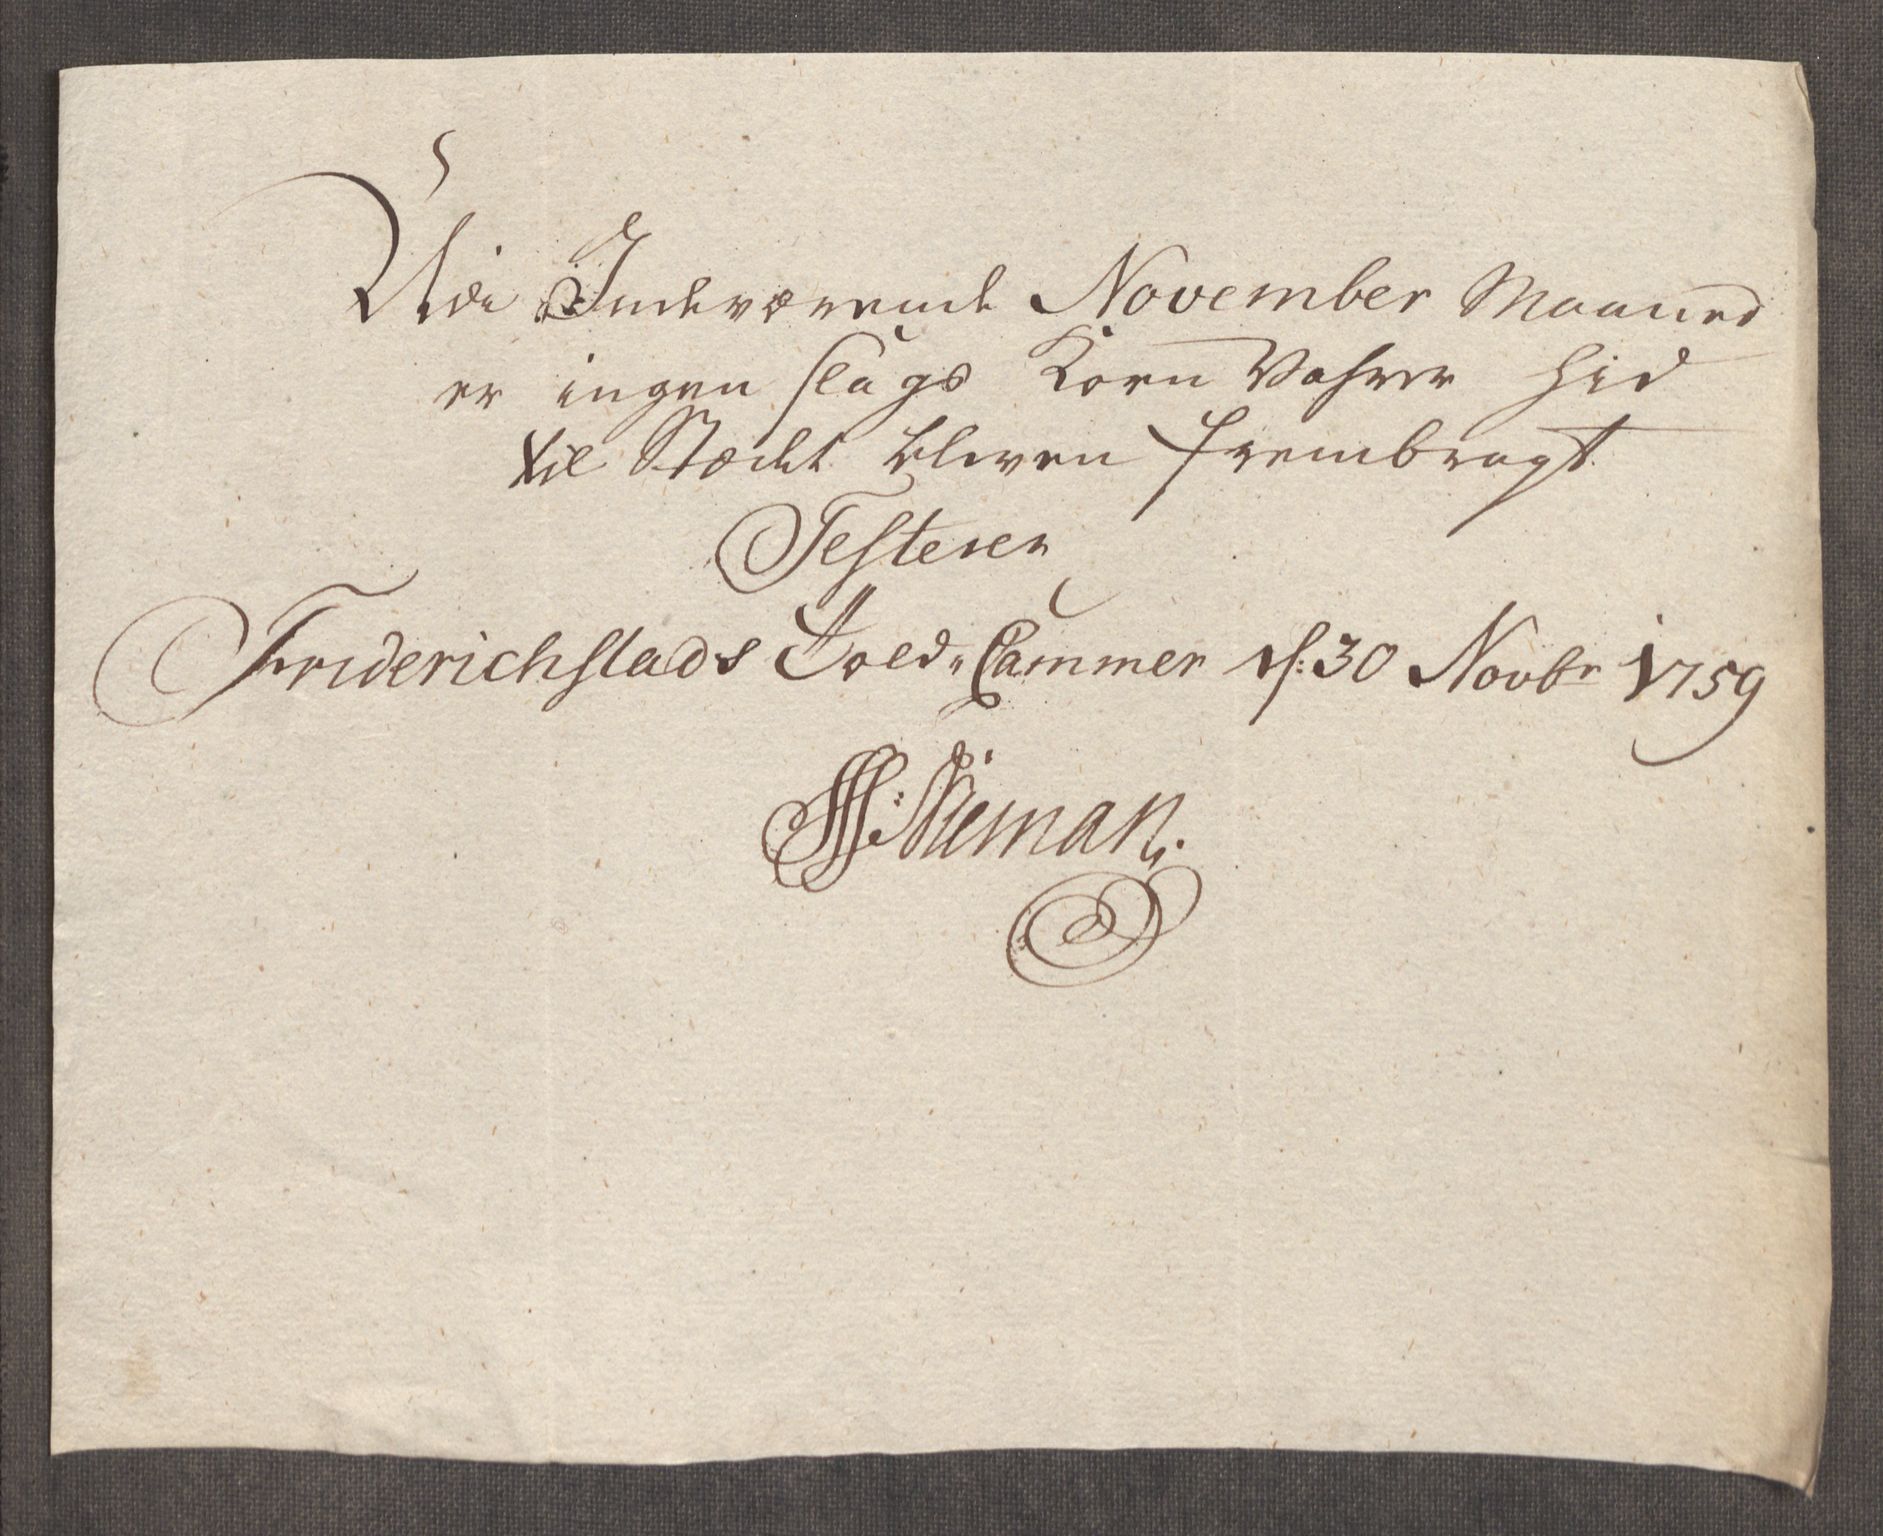 Udi Indeværende November Maaned
er ingen slags Korn Vahrer hid
til Stædet bleven frembragt
Testerer
Friderichstads Told-Cammer d: 30 Novbr 1759
Nieman